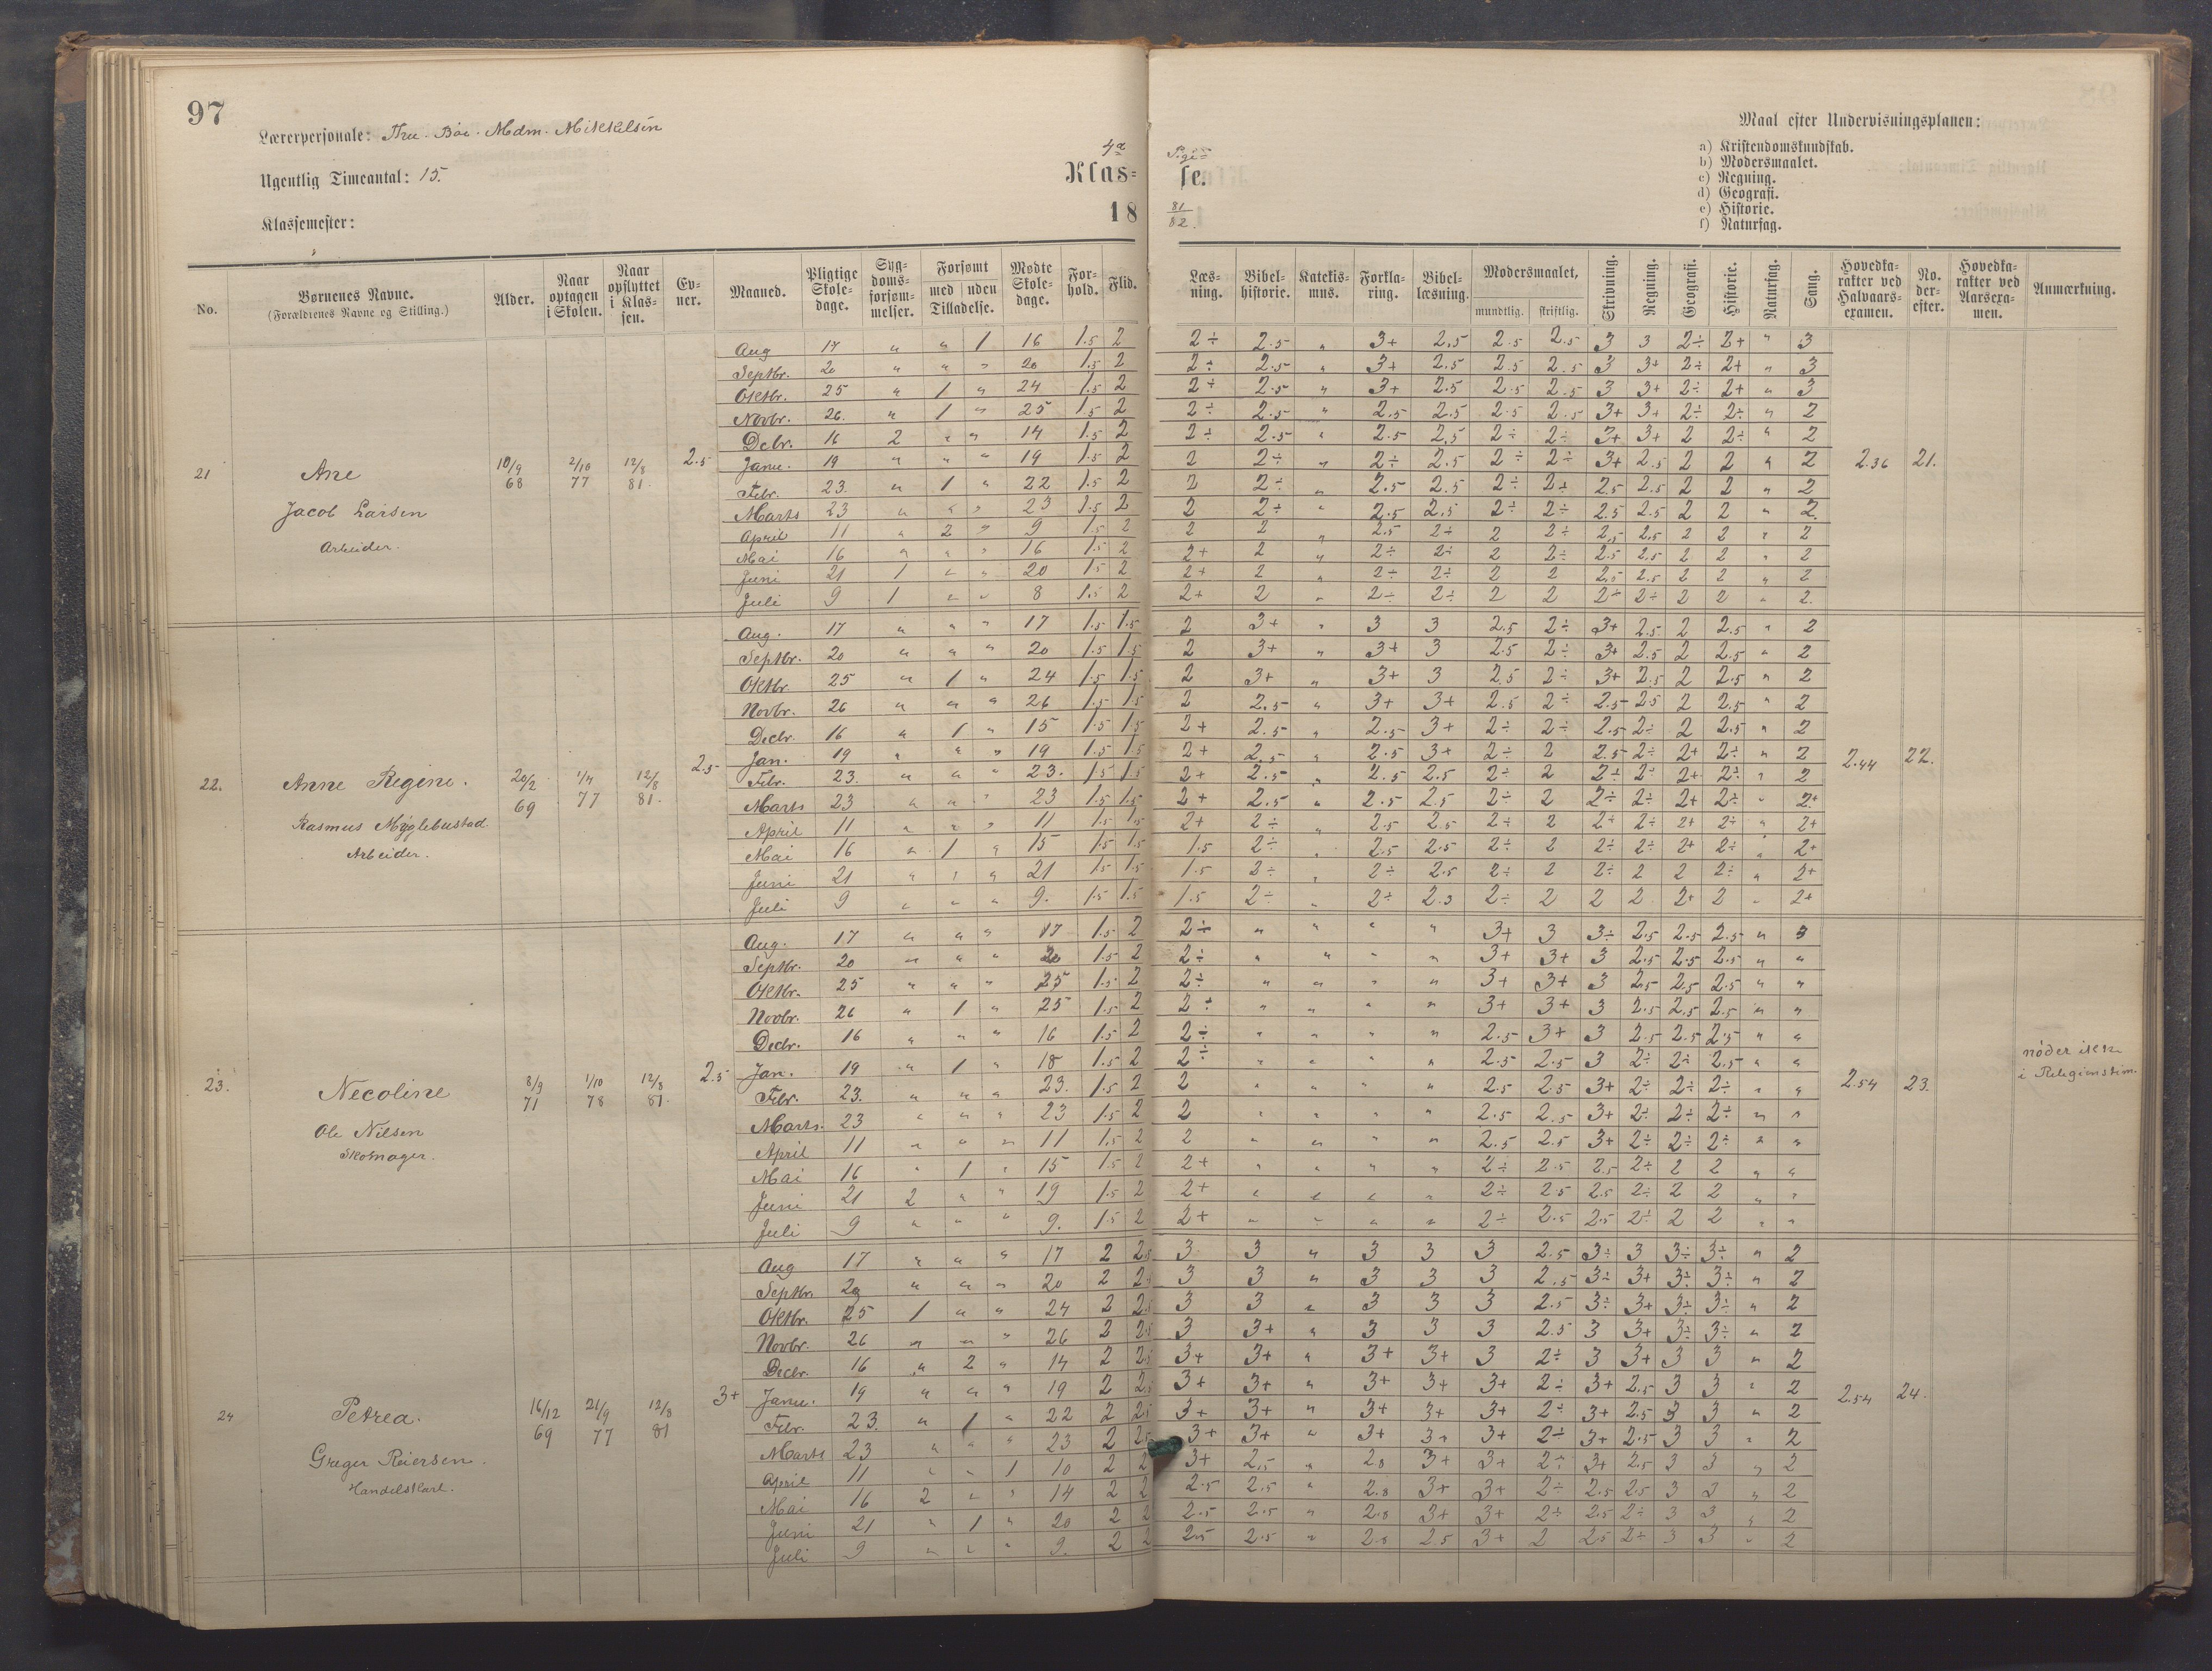 97
Lærerpersonale: Thu. Böe. Mdm. Mikkelsen
Ugentlig Timeantal: 15.
Klassemester:
4a Pige=
Klas= se.
18 81/82.
Maal efter Undervisningsplanen:
a) Kristendomskundskab.
b) Modersmaalet.
c) Regning.
d) Geografi.
e) Historie.
f) Naturfag.
No. Børnenes Navne. (Forældrenes Navne og Stilling.) Alder. Naar optagen i Skolen. Naar opflyttet i Klassen. Evner. Maaned. Pligtige Skoledage. Sygdomsforsømmelser. Forsømt med uden Tilladelse. Mødte Skoledage. Forhold. Flid. Læsning. Bibelhistorie. Katekismus. Forklaring. Bibellæsning. Modersmaalet, mundtlig. skriftlig. Skrivning. Regning. Geografi. Historie. Naturfag. Sang. Hovedkarakter ved Halvaarsexamen. No. derefter. Hovedkarakter ved Aarsexamen. Anmærkning.
21 Ane Jacob Larsen Arbeider. 10/9 68 2/10 77 12/8 81. 2.5 2.36 21.
Aug 17 " " 1 16 1.5 2 2÷ 2.5 " 3+ 2.5 2.5 2.5 3 3 2÷ 2+ " 3
Septbr. 20 " " " 20 1.5 2 2÷ 2.5 " 3+ 2.5 2.5 2.5 3 3+ 2÷ 2+ " 3
Oktbr. 25 " 1 " 24 1.5 2 2÷ 2.5 " 3+ 2.5 2.5 2.5 3 3+ 2÷ 2+ " 3
Novbr. 26. " 1 " 25 1.5 2 2÷ 2.5 " 2.5 2.5 2.5 2.5 3+ 3+ 2÷ 2÷ " 2
Debr. 16 2 " " 14 1.5 2 2÷ 2.5 " 2.5 2.5 2÷ 2÷ 3+ 3+ 2 2÷ " 2
Janu. 19 " " " 19 1.5 2 2 2÷ " 2÷ 2.5 2÷ 2÷ 3+ 2.5 2 2 " 2
Febr. 23. " 1 " 22 1.5 2 2 2÷ " 2.5 2.5 2÷ 2÷ 2.5 2.5 2 2 " 2
Marts 23 " " " 23 1.5 2 2 2÷ " 2.5 2.5 2÷ 2÷ 2.5 2.5 2 2 " 2.
April 11 " 2 " 9 1.5 2 2 2 " 2.5 2÷ 2 2÷ 2.5 2.5 2 2 " 2
Mai 16 " " " 16 1.5 2 2+ 2 " 2÷ 2÷ 2 2÷ 2.5 2.5 2 2 " 2
Juni 21 1 " " 20 1.5 2 2+ 2 " 2÷ 2÷ 2 2 2.5 2.5 2 2 " 2
Juli 9 1 " " 8 1.5 2 2+ 2 " 2÷ 2÷ 2 2 2÷ 2÷ 2 2 " 2.
22. Anne Regine. Rasmus Myglebustad. Arbeider. 20/2 69 1/4 77 12/8 81. 2.5 2.44 22.
Aug. 17 " " " 17 1.5 1.5 2 3+ " 3 3 2.5 2÷ 3+ 2.5 2 2.5 " 2
Septbr. 20 " " " 20 1.5 1.5 2 3+ " 3+ 3 2.5 2÷ 3+ 2.5 2 2.5 " 2
Oktbr 25 " 1 " 24 1.5 1.5 2 3+ " 3+ 3 2.5 2÷ 3+ 2.5 2 2.5 " 2
Novbr. 26 " " " 26 1.5 1.5 2 2.5 " 3+ 3+ 2.5 2÷ 2.5 2.5 2 2.5 " 2
Decbr. 16 " 1 " 15 1.5 1.5 2+ 2.5 " 2.5 3+ 2÷ 2÷ 2.5 2÷ 2 2.5 " 2
Jan. 19 " " " 19 1.5 1.5 2+ 2.5 " 2.5 3+ 2÷ 2 2.5 2÷ 2+ 2÷ " 2
Febr. 23. " " " 23. 1.5 1.5 2+ 2.5 " 2.5 2.5 2÷ 2 2÷ 2÷ 2+ 2÷ " 2
Marts 23 " " " 23 1.5 1.5 2+ 2.5 " 2.5 2.5 2÷ 2 2÷ 2÷ 2+ 2÷ " 2+
April 11 " " " 11 1.5 1.5 2+ 2÷ " 2.5 2.5 2÷ 2 2÷ 2÷ 2+ 2÷ " 2+
Mai 16 " 1 " 15 1.5 1.5 1.5 2÷ " 2.5 2.5 2÷ 2 2÷ 2÷ 2+ 2÷ " 2+
Juni 21 " " " 21 1.5 1.5 1.5 2÷ " 2÷ 2.5 2÷ 2 2÷ 2 2 2÷ " 2+
Juli 9 " " " 9. 1.5 1.5 1.5 2÷ " 2÷ 2.5 2÷ 2 2 2 2+ 2 " 2+
23. Necoline Ole Nilsen Skomager. 8/9 71 1/10 78 12/8 81. 2.5 2.54 23. möder ikke i Religionstim.
Aug. 17 " " " 17 1.5 2 2÷ " " " " 3+ 3 3÷ 2.5 2.5 2.5 " 3
Septbr. 20 " " " 20 1.5 2 2÷ " " " " 3+ 3+ 3 2.5 2.5 2.5 " "
Oktbr. 25 " " " 25 1.5 2 2÷ " " " " 3+ 3+ 3 2.5 2.5 2.5 " "
Novbr. 26 " 1 " 25 1.5 2 2÷ " " " " 3+ 3+ 3 2.5 2.5 2.5 " "
Decbr. 16 " " " 16 1.5 2 2÷ " " " " 2.5 3+ 3 2.5 2.5 2.5 " "
Jan. 19 " 1 " 18 1.5 2 2÷ " " " " 2.5 2.5 3 2÷ 2÷ 2.5 " "
Febr. 23. " " " 23. 1.5 2 2 " " " " 2.5 2.5 3+ 2÷ 2÷ 2÷ " "
Marts. 23 " " " 23 1.5 2 2 " " " " 2.5 2.5 3+ 2÷ 2÷ 2÷ " "
April 11 " " " 11 1.5 2 2 " " " " 2.5 2.5 3+ 2÷ 2÷ 2÷ " "
Mai 16 " 1 " 15 1.5 2 2+ " " " " 2÷ 2.5 2.5 2÷ 2 2 " "
Juni 21 2 " " 19 1.5 2 2+ " " " " 2÷ 2.5 2.5 2÷ 2 2 " "
Juli 9 " " " 9. 1.5 2 2+ " " " " 2÷ 2.5 2.5 2÷ 2 2 " "
24 Petrea. Greger Reiersen. Handelskarl. 16/12 69 21/9 77 12/8 81 3+ 2.54 24.
Aug 17 " " " 17 2 2.5 3 3 " 3 3 3 2.5 3÷ 3 3÷ 3÷ " 2
Septbr. 20 " " " 20 2 2.5 3 3 " 3 3 3 2.5 3÷ 3+ 3÷ 3÷ " 2
Oktbr. 25 1 " " 24 2 2.5 3 3 " 3 3 3 2.5 3÷ 3+ 3÷ 3÷ " 2
Novbr. 26 " " " 26 2 2.5 3 3+ " 3 3 3 2.5 3 3+ 3÷ 3÷ " 2
Decbr. 16 " 2 " 14 2 2.5 3+ 3+ " 3+ 3+ 3 2÷ 3 3+ 3 3 " 2
Janu. 19 " " " 19 2 2.5 3+ 3+ " 3+ 3+ 3+ 2÷ 3+ 2.5 3 3 " 2
Febr. 23. " 1 " 22 2 2.5 3+ 3+ " 3+ 3+ 3+ 2÷ 3+ 2.5 3 3 " 2
Marts 23 " " " 23 2 2.5 3+ 3+ " 3+ 3+ 3+ 2÷ 3+ 2.5 3 3 " 2
April 11 " " 1 10 2 2 3+ 2.5 " 2.8 3+ 3+ 2÷ 3+ 2.5 3 3 " 2
Mai 16 2 " " 14 2 2 2.5 2.5 " 2.8 3+ 3+ 2÷ 2.5 2.5 3 3 " 2
Juni 21 " 1 " 20 2 2 2.5 2.5 " 2.8 3+ 3+ 2÷ 2.5 2÷ 3 3 " 2
Juli 9 " " " 9. 2 2 2.5 2.5 " 2.8 2.5 3+ 2 2.5 2÷ 3 3 " 2